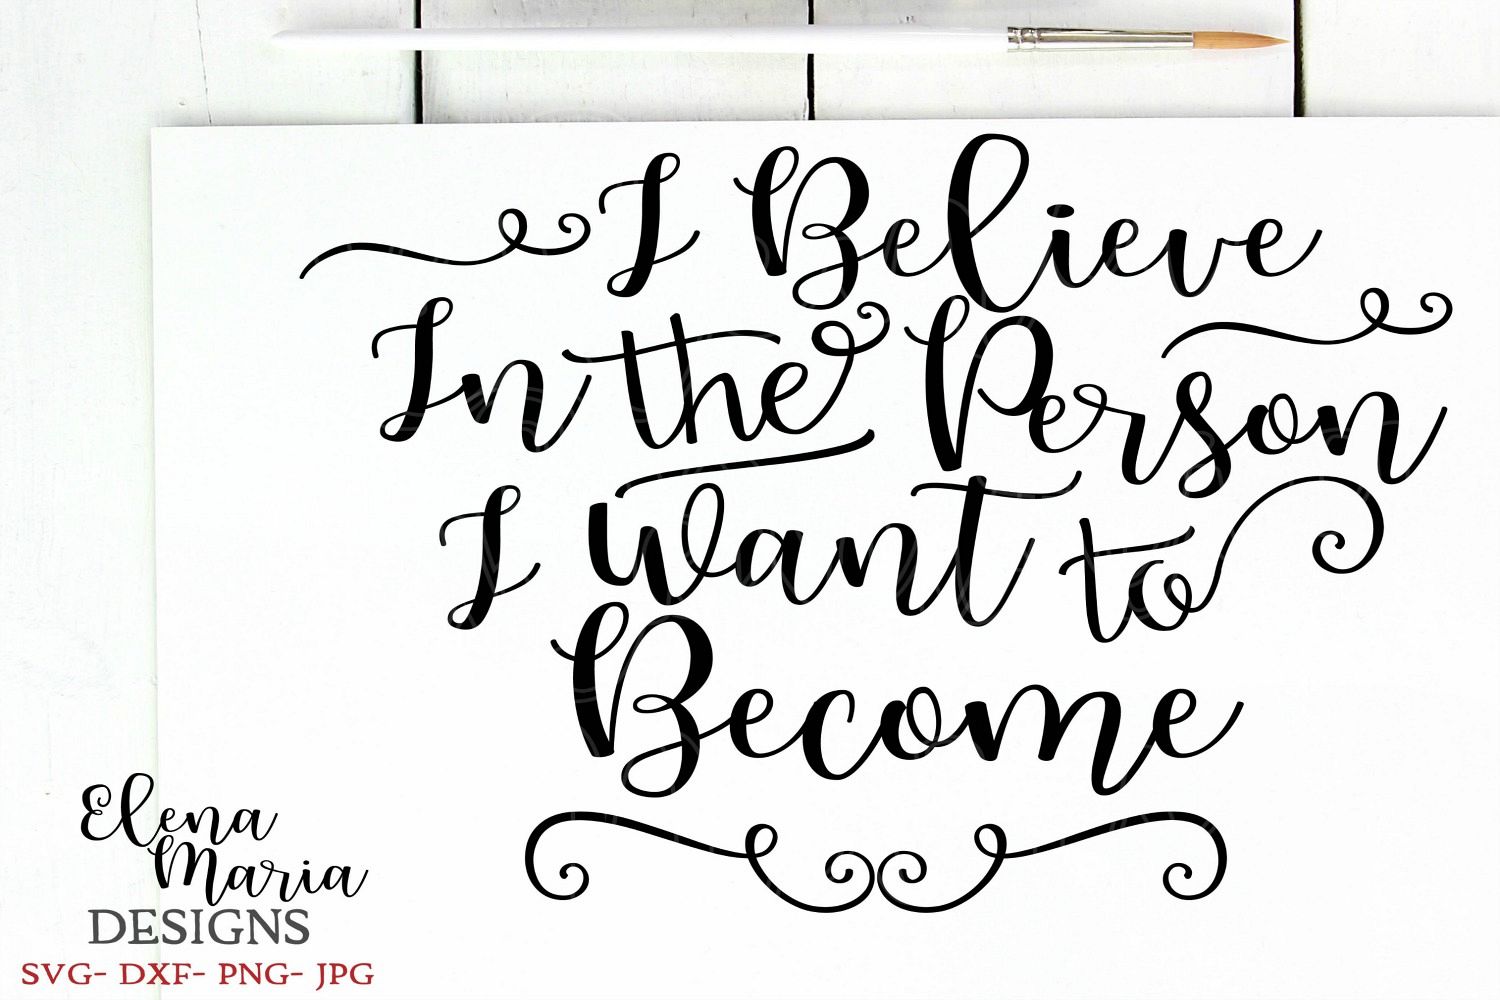 I Believe
In the Person
I want to
Become
Elena
Maria
DESIGNS
SVG- DXF- PNG- JPG